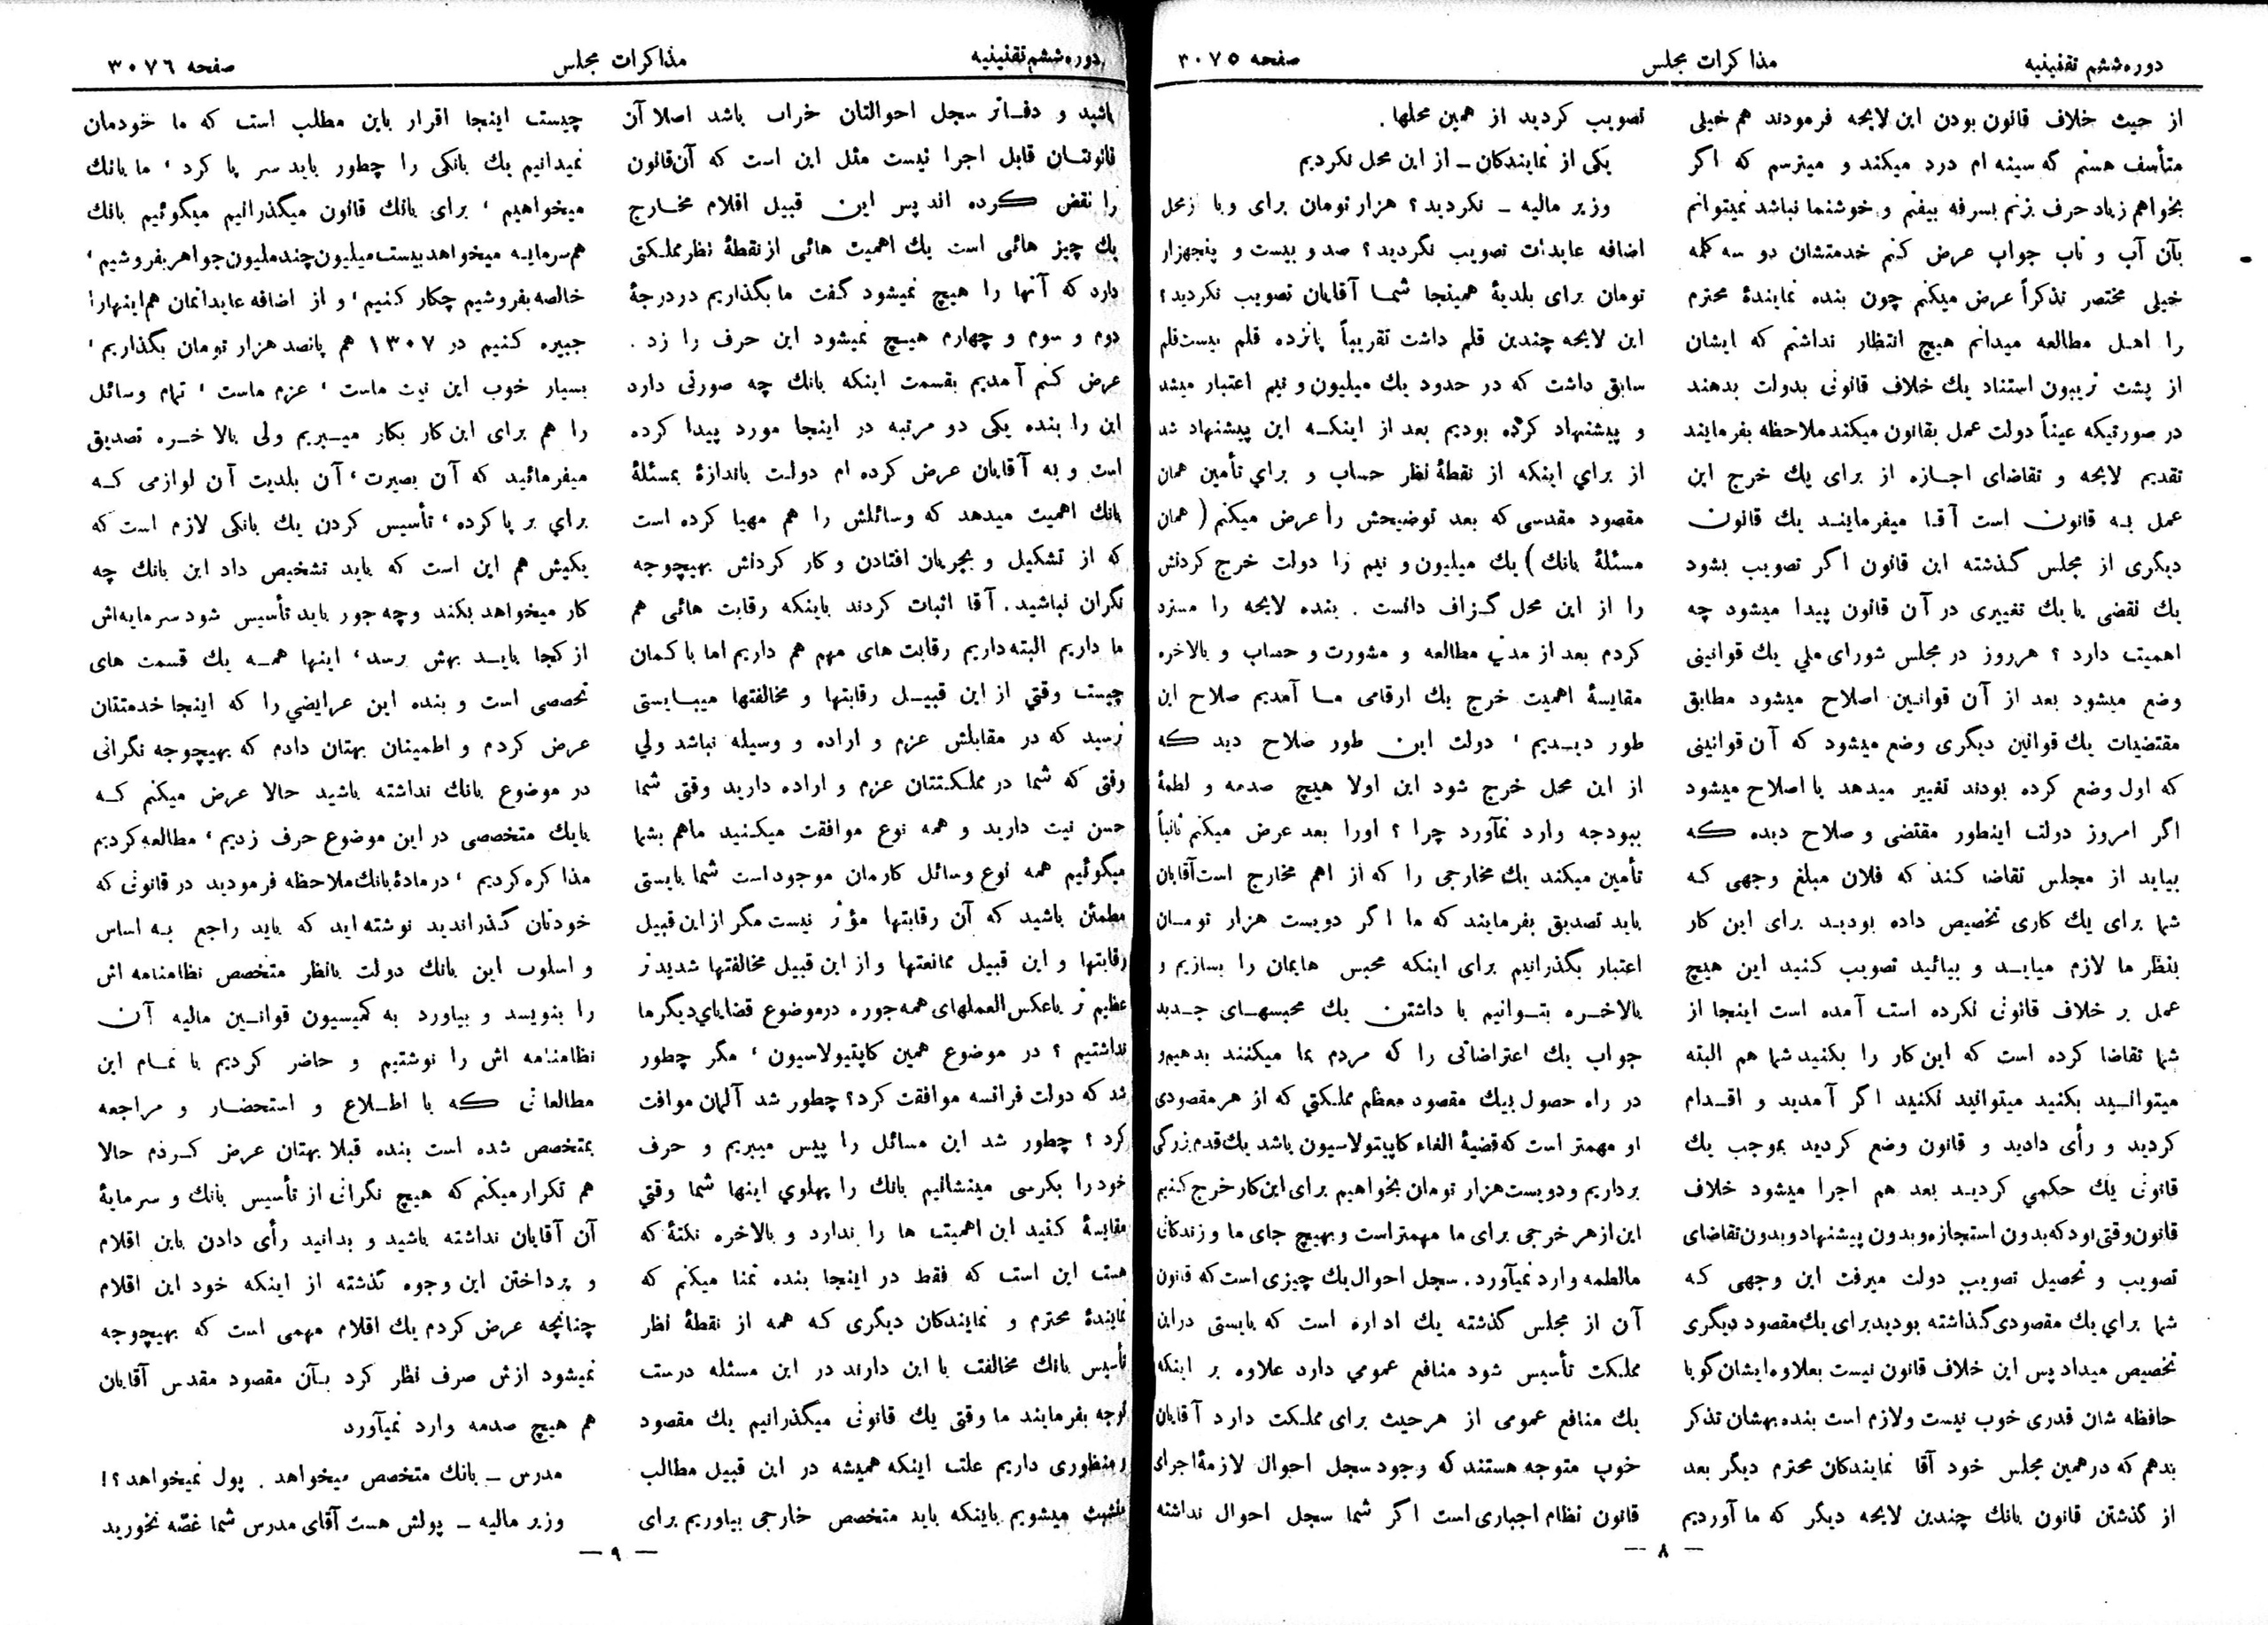 دوره ششم تقنینیه
مذاکرات مجلس
صفحه ۳۰۷۵
از حیث خلاف قانون بودن این لایحه فرمودند هم خیلی
متأسف هستم که سینه ام درد میکند و میترسم که اگر
بخواهم زیاد حرف بزنم بسرفه بیفتم و خوشنما نباشد نمیتوانم
بآن آب و تاب جواب عرض کنم خدمتشان دو سه کلمه
خیلی مختصر تذکراً عرض میکنم چون بنده نمایندهٔ محترم
را اهل مطالعه میدانم هیچ انتظار نداشتم که ایشان
از پشت تریبون استناد یك خلاف قانونی بدولت بدهند
در صورتیکه عیناً دولت عمل بقانون میکند ملاحظه بفرمایند
تقدیم لایحه و تقاضای اجازه از برای یك خرج این
عمل به قانون است آقا میفرمایند یك قانون
دیگری از مجلس گذشته این قانون اگر تصویب بشود
یك نقضی یا یك تغییری در آن قانون پیدا میشود چه
اهمیت دارد ؟ هرروز در مجلس شورای ملی یك قوانینی
وضع میشود بعد از آن قوانین اصلاح میشود مطابق
مقتضیات یك قوانین دیگری وضع میشود که آن قوانینی
که اول وضع کرده بودند تغییر میدهد یا اصلاح میشود
اگر امروز دولت اینطور مقتضی و صلاح دیده که
بیاید از مجلس تقاضا کند که فلان مبلغ وجهی که
شما برای یك کاری تخصیص داده بودید برای این کار
بنظر ما لازم میاید و بیائید تصویب کنید این هیچ
عمل بر خلاف قانونی نکرده است آمده است اینجا از
شما تقاضا کرده است که این کار را بکنید شما هم البته
میتوانید بکنید میتوانید نکنید اگر آمدید و اقدام
کردید و رأی دادید و قانون وضع کردید بموجب یك
قانونی یك حکمی کردید بعد هم اجرا میشود خلاف
قانون وقتی بود که بدون استجازه و بدون پیشنهاد و بدون تقاضای
تصویب و تحصیل تصویب دولت میرفت این وجهی که
شما برای یك مقصودی گذاشته بودید برای یك مقصود دیگری
تخصیص میداد پس این خلاف قانون نیست بعلاوه ایشان گویا
حافظه شان قدری خوب نیست و لازم است بنده بهشان تذکر
بدهم که در همین مجلس خود آقا نمایندگان محترم دیگر بعد
از گذشتن قانون بانك چندین لایحه دیگر که ما آوردیم
تصویب کردید از همین محلها .
یکی از نمایندگان ـ از این محل نکردیم
وزیر مالیه ـ نکردید ؟ هزار تومان برای وبا ز محل
اضافه عایدات تصویب نگردید ؟ صد و بیست و پنجهزار
تومان برای بلدیهٔ همینجا شما آقایان تصویب نکردید ؟
این لایحه چندین قلم داشت تقریباً پانزده قلم بیست قلم
سابق داشت که در حدود یك میلیون و نیم اعتبار میشد
و پیشنهاد کرده بودیم بعد از اینکه این پیشنهاد شد
از برای اینکه از نقطهٔ نظر حساب و برای تأمین همان
مقصود مقدسی که بعد توضیحش را عرض میکنم ( همان
مسئلهٔ بانك ) یك میلیون و نیم را دولت خرج کردنش
را از این محل گزاف دانست . بنده لایحه را مسترد
کردم بعد از مدتی مطالعه و مشورت و حساب و بالاخره
مقایسهٔ اهمیت خرج یك ارقامی ما آمدیم صلاح این
طور دیدیم ، دولت این طور صلاح دید که
از این محل خرج شود این اولا هیچ صدمه و لطمهٔ
ببودجه وارد نمآورد چرا ؟ اورا بعد عرض میکنم ثانیاً
تأمین میکند یك مخارجی را که از اهم مخارج است آقایان
باید تصدیق بفرمایند که ما اگر دویست هزار تومان
اعتبار بگذرانیم برای اینکه محبس هایمان را بسازیم و
بالاخره بتوانیم با داشتن یك محبسهای جدید
جواب یك اعتراضاتی را که مردم بما میکنند بدهیم و
در راه حصول بیك مقصود معظم مملکتی که از هر مقصودی
او مهمتر است که قضیهٔ الغاء کاپیتولاسیون باشد یك قدم بزرگی
برداریم و دویست هزار تومان بخواهیم برای این کار خرج کنیم
این از هر خرجی برای ما مهمتر است و بهیچ جای ما و زندگانی
ما لطمه وارد نمیآورد . سجل احوال یك چیزی است که قانون
آن از مجلس گذشته یك اداره است که بایستی در این
مملکت تأسیس شود منافع عمومی دارد علاوه بر اینکه
یك منافع عمومی از هر حیث برای مملکت دارد آقایان
خوب متوجه هستند که وجود سجل احوال لازمهٔ اجرای
قانون نظام اجباری است اگر شما سجل احوال نداشته
— ۸ —
دوره ششم تقنینیه
مذاکرات مجلس
صفحه ۳۰۷۶
باشید و دفاتر سجل احوالتان خراب باشد اصلا آن
قانونتان قابل اجرا نیست مثل این است که آن قانون
را نقض کرده اند پس این قبیل اقلام مخارج
یك چیز هائی است یك اهمیت هائی از نقطهٔ نظر مملکتی
دارد که آنها را هیچ نمیشود گفت ما بگذاریم در درجهٔ
دوم و سوم و چهارم هیچ نمیشود این حرف را زد .
عرض کنم آمدیم بقسمت اینکه بانك چه صورتی دارد
این را بنده یکی دو مرتبه در اینجا مورد پیدا کرده
است و به آقایان عرض کرده ام دولت باندازهٔ بمسئلهٔ
بانك اهمیت میدهد که وسائلش را هم مهیا کرده است
که از تشکیل و بجریان افتادن و کار کردنش بهیچوجه
نگران نباشید . آقا اثبات کردند باینکه رقابت هائی هم
ما داریم البته داریم رقابت های مهم هم داریم اما با کمان
چیست وقتی از این قبیل رقابتها و مخالفتها میبایستی
ترسید که در مقابلش عزم و اراده و وسیله نباشد ولی
وقتی که شما در مملکتتان عزم و اراده دارید وقتی شما
حسن نیت دارید و همه نوع موافقت میکنید ماهم بشما
میگوئیم همه نوع وسائل کارمان موجود است شما بایستی
مطمئن باشید که آن رقابتها مؤثر نیست مگر از این قبیل
رقابتها و این قبیل ممانعتها و از این قبیل مخالفتها شدیدتر
عظیم تر با عکس العملهای همه جوره در موضوع قضایای دیگر ما
نداشتیم ؟ در موضوع همین کاپتیولاسیون ، مگر چطور
شد که دولت فرانسه موافقت کرد ؟ چطور شد آلمان موافقت
کرد ؟ چطور شد این مسائل را پیس میبریم و حرف
خود را بکرسی مینشانیم بانك را پهلوی اینها شما وقتی
مقایسهٔ کنید این اهمیت ها را ندارد و بالاخره نکتهٔ که
هست این است که فقط در اینجا بنده تمنا میکنم که
نمایندهٔ محترم و نمایندگان دیگری که همه از نقطهٔ نظر
تأسیس بانك مخالفت با این دارند در این مسئله درست
توجه بفرمایند ما وقتی یك قانونی میگذرانیم یك مقصود
و منظوری داریم علت اینکه همیشه در این قبیل مطالب
متشبث میشویم باینکه باید متخصص خارجی بیاوریم برای
چیست اینجا اقرار باین مطلب است که ما خودمان
نمیدانیم یك بانکی را چطور باید سر پا کرد ، ما بانك
میخواهیم ، برای بانك قانون میگذرانیم میگوئیم بانك
هم سرمایه میخواهد بیست میلیون چند ملیون جواهر بفروشیم ،
خالصه بفروشیم چکار کنیم ، و از اضافه عایداتمان هم اینهارا
جبیره کنیم در ۱۳۰۷ هم پانصد هزار تومان بگذاریم ،
بسیار خوب این نیت ماست ، عزم ماست ، تمام وسائل
را هم برای این کار بکار میبریم ولی بالاخره تصدیق
میفرمائید که آن بصیرت ، آن بلدیت آن لوازمی که
برای بر پا کرده ، تأسیس کردن یك بانکی لازم است که
یکیش هم این است که باید تشخیص داد این بانك چه
کار میخواهد بکند و چه جور باید تأسیس شود سرمایه اش
از کجا باید بهش برسد ، اینها همه یك قسمت های
تخصصی است و بنده این عرایضی را که اینجا خدمتتان
عرض کردم و اطمینان بهتان دادم که بهیچوجه نگرانی
در موضوع بانك نداشته باشید حالا عرض میکنم که
بایك متخصصی در این موضوع حرف زدیم ، مطالعه کردیم
مذاکره کردیم ، در مادهٔ بانك ملاحظه فرمودید در قانونی که
خودتان گذراندید نوشته اید که باید راجع به اساس
و اسلوب این بانك دولت بانظر متخصص نظامنامه اش
را بنویسد و بیاورد به کمیسیون قوانین مالیه آن
نظامنامه اش را نوشتیم و حاضر کردیم با تمام این
مطالعاتی که با اطلاع و استحضار و مراجعه
بمتخصص شده است بنده قبلا بهتان عرض کردم حالا
هم تکرار میکنم که هیچ نگرانی از تأسیس بانك و سرمایهٔ
آن آقایان نداشته باشید و بدانید رأی دادن باین اقلام
و پرداختن این وجوه گذشته از اینکه خود این اقلام
چنانچه عرض کردم یك اقلام مهمی است که بهیچوجه
نمیشود ازش صرف نظر کرد بآن مقصود مقدس آقایان
هم هیچ صدمه وارد نمیآورد
مدرس ـ بانك متخصص میخواهد . پول نمیخواهد ؟!
وزیر مالیه ـ پولش هست آقای مدرس شما غصّه نخورید
— ۹ —